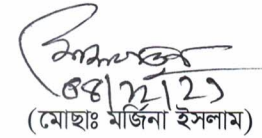 ০৪/১২/২১
(মোছাঃ মর্জিনা ইসলাম)